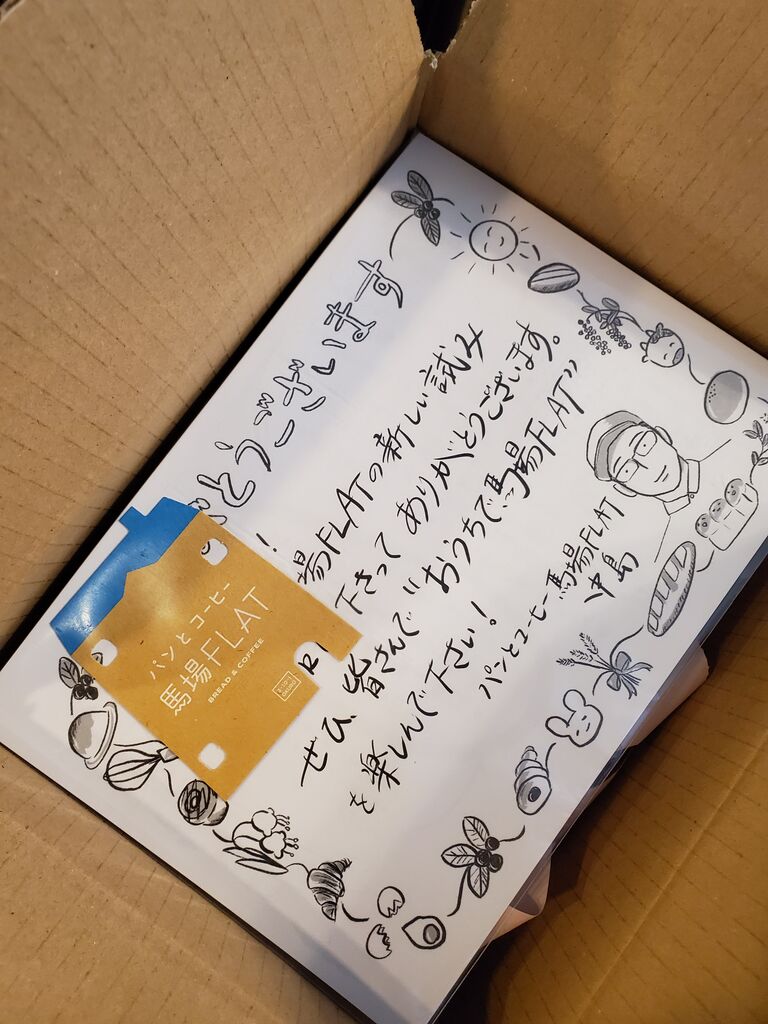 とうございます
!
場FLATの新しい試み
下さって ありがとうございます。
ぜひ、皆さんで "おうちで馬場FLAT"
を楽しんで下さい!
パンとコーヒー 馬場FLAT
中島
パンとコーヒー
馬場FLAT
BREAD & COFFEE